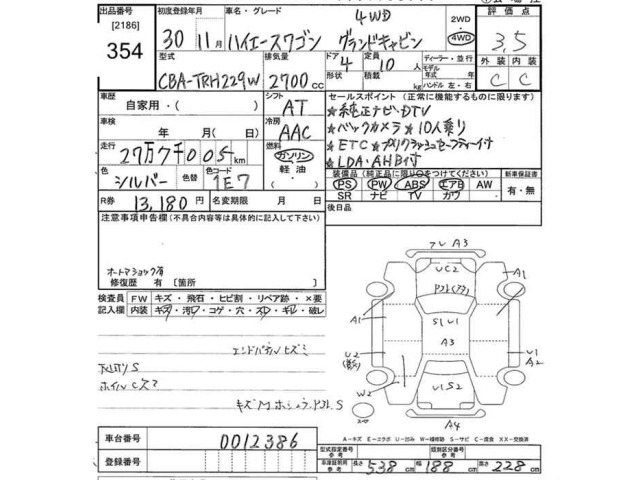 出品番号
[2186]
354
初度登録年月
30年11月
車名・グレード
4WD
ハイエースワゴン グランドキャビン
2WD
4WD
評価点
3.5
外装 内装
C C
型式
CBA-TRH229W
排気量
2700cc
ドア 4
形状
定員 10人
積載 kg
ディーラー・並行
モデル年式 年式
ハンドル 左・右
車歴
自家用・( )
シフト
AT
車検
年 月( 日)
冷房
AAC
走行
27万7千005km
燃料
ガソリン
軽油
色
シルバー
色替
色コード
1E7
R券 13,180円
名変期限 月 日
セールスポイント (正常に機能するものに限ります)
★純正ナビ・DTV
★バックカメラ ★10人乗り
★ETC ★プリクラッシュセーフティー付
★LDA・AHB付
装備品(純正品に限り○をつけてください)
PS PW ABS エアB AW
SR ナビ TV カワ
新車保証書
有・無
後日品
注意事項申告欄(不具合内容等は具体的に記入して下さい)
オートマショック有
修復歴 有 [箇所 ]
検査員記入欄
FW キズ・飛石・ヒビ割・リペア跡・×要
内装 キズ・汚レ・コゲ・穴・スレ・キレ・破レ
エンドパネルヒズミ
下廻りS
車台番号 0012386
登録番号
フレ A3
A1
UC2
A1
S1U1
A3
U2
U1
A2
W2
U1S2
A4
A-キズ E-エクボ U-凹み W-補修跡 S-サビ C-腐食 XX-交換済
型式指定番号 参考
類別区分番号 参考
車庫証明用 参考 長さ 538cm 幅 188cm 高さ 228cm